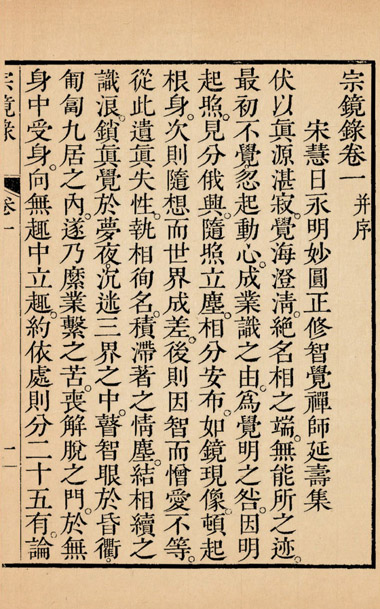 宗鏡錄卷一 并序
宋慧日永明妙圓正修智覺禪師延壽集
伏以眞源湛寂。覺海澄淸。絕名相之端。無能所之迹。
最初不覺。忽起動心。成業識之由。爲覺明之咎。因明
起照。見分俄興。隨照立塵。相分安布。如鏡現像。頓起
根身。次則隨想而世界成差。後則因智而憎愛不等。
從此遺眞失性。執相徇名。積滯著之情塵。結相續之
識浪。鎖眞覺於夢夜。沉迷三界之中。瞽智眼於昏衢。
匍匐九居之內。遂乃縻業繫之苦。喪解脫之門。於無
身中受身。向無趣中立趣。約依處則分二十五有。論
宗鏡錄 卷一 一